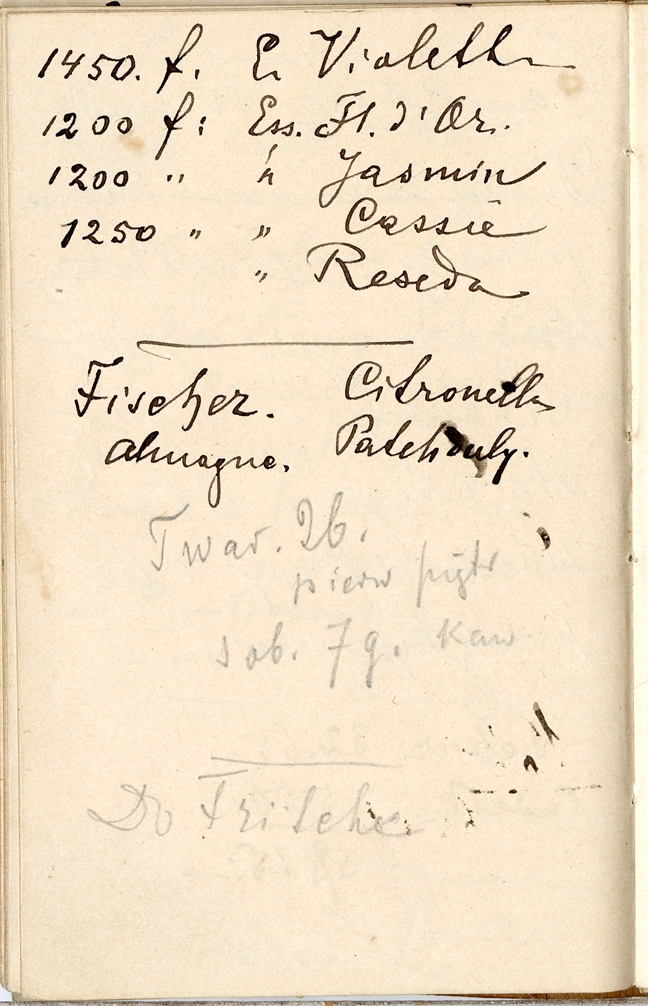 1450. f. E. Violette
1200 f: Ess. Fl. d'Or.
1200 " " Jasmin
1250 " " Cassie
" Reseda
Fischer. Citronella
Almagne. Patchouly.
Twar. 26.
pierw piętr
sob. 7 g. Kaw
Do Fritsche